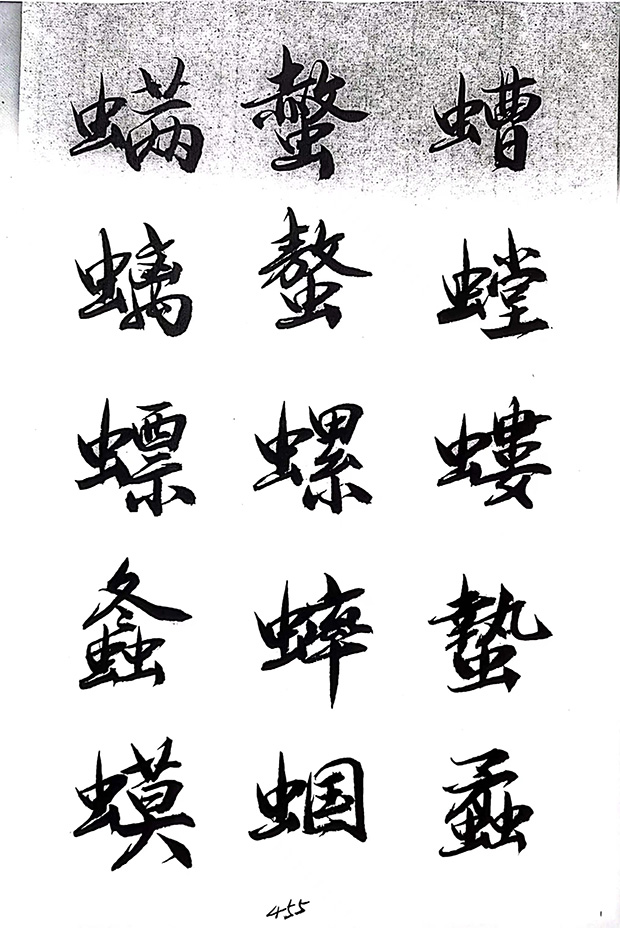 螨 螫 螬
螭 螯 螳
螵 螺 螻
螽 蟀 蟄
蟆 蝈 蟊
455